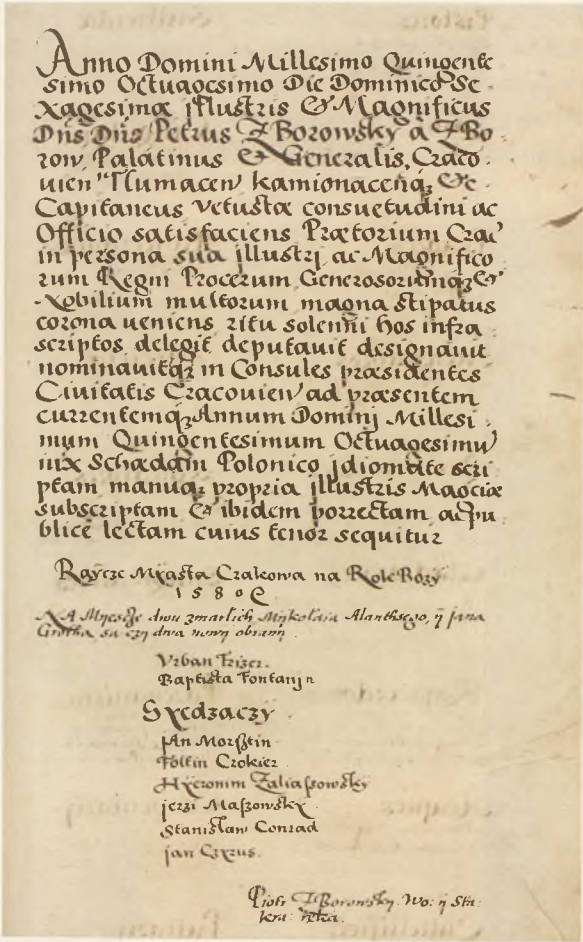 Anno Domini Millesimo Quingente
simo Octuagesimo Die Dominico Se
xagesimæ Illustris & Magnificus
Dns Dns Petrus Z Borowsky a Z Bo
row, Palatinus & Generalis, Craco
uien Tlumacen kamionacenq &c
Capitaneus vetustæ consuetudini ac
Officio satisfaciens Prætorium Crac
in persona sua illustri ac Magnifico
rum Regni Procerum Generosorumq &
Nobilium multorum magna stipatus
corona ueniens ritu solenni hos infra
scriptos delegit deputauit designauit
nominauitq in Consules præsidentes
Ciuitatis Cracouien ad præsentem
currentemq Annum Domini Millesi
mum Quingentesimum Octuagesimu
iux Schædam Polonico idiomate scri
ptam manuq propria illustris Mag
subscriptam & ibidem porrectam ac pu
blice lectam cuius tenor sequitur
Raycze Myasta Crakowa na Rok Bozy
1580
NA Myescze dwu zmarlich Mykolaia Alanthsego, y jana
Grothka, sa czy dwa nowy obrany
Vrban Frizer.
Baptista Fontanyn
Syedzaczy
Jan Morsztin
Foltin Crokier
Hyeronim Zaliaszowsky
jerzi Maszowsky
Stanislaw Conrad
jan Cyrus.
Piotr Z Borowsky. Wo: y Sta:
kra: ręka.